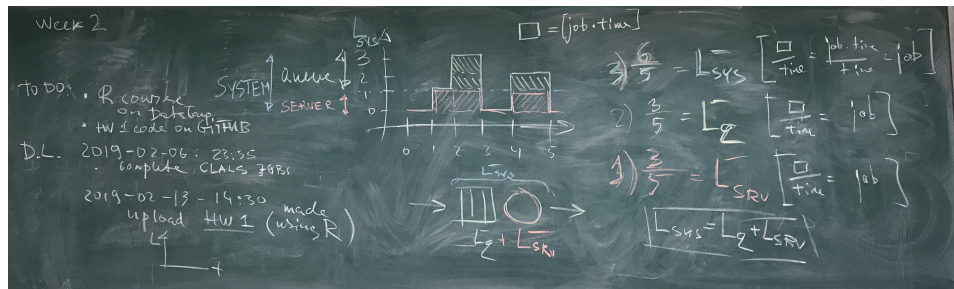 Week 2
TO DO:
• R course
on DataCamp
• HW 1 code on GITHUB
D.L. 2019-02-06: 23:55
2019-02-13 - 14:30
upload HW1 (made using R)
L
t
L sys
SYSTEM
Queue
SERVER
3
2
1
0
0 1 2 3 4 5
L sys
Lq + L SRV
□ = [job·time]
3) 6/5 = L sys [□/time = job·time/time = job]
2) 3/5 = Lq [□/time = job]
1) 3/5 = L SRV [□/time = job]
L sys = Lq + L SRV